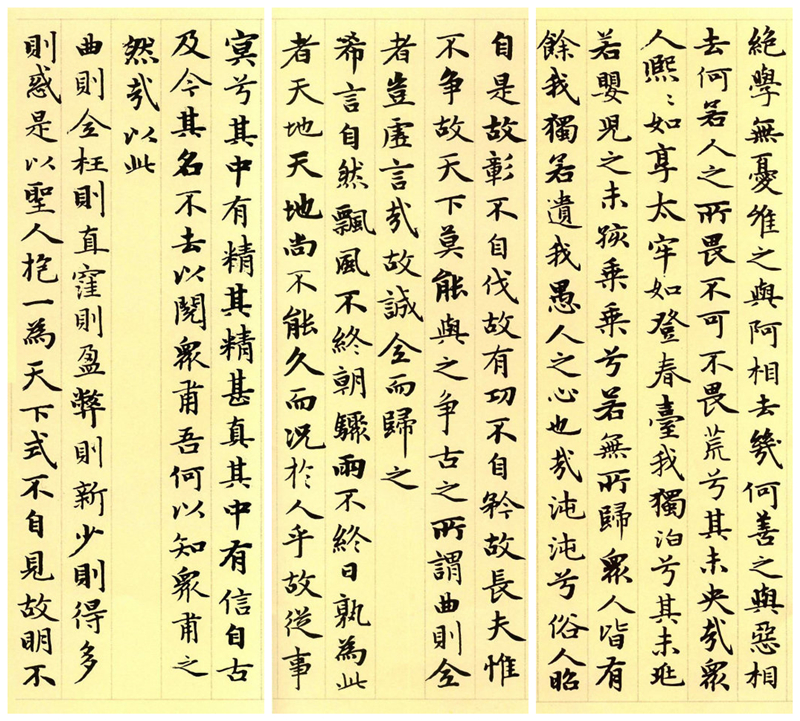 絶學無憂維之與阿相去幾何善之與惡相
去何若人之所畏不可不畏荒兮其未央哉衆
人熙〻如享太牢如登春臺我獨泊兮其未兆
若嬰兒之未孩乘乘兮若無所歸衆人皆有
餘我獨若遺我愚人之心也哉沌沌兮俗人昭
自是故彰不自伐故有功不自矜故長夫惟
不争故天下莫能與之争古之所謂曲則全
者豈虛言哉故誠全而歸之
希言自然飄風不終朝驟雨不終日孰為此
者天地天地尚不能久而況於人乎故從事
冥兮其中有精其精甚真其中有信自古
及今其名不去以閱衆甫吾何以知衆甫之
然哉以此
曲則全枉則直窪則盈弊則新少則得多
則惑是以聖人抱一為天下式不自見故明不